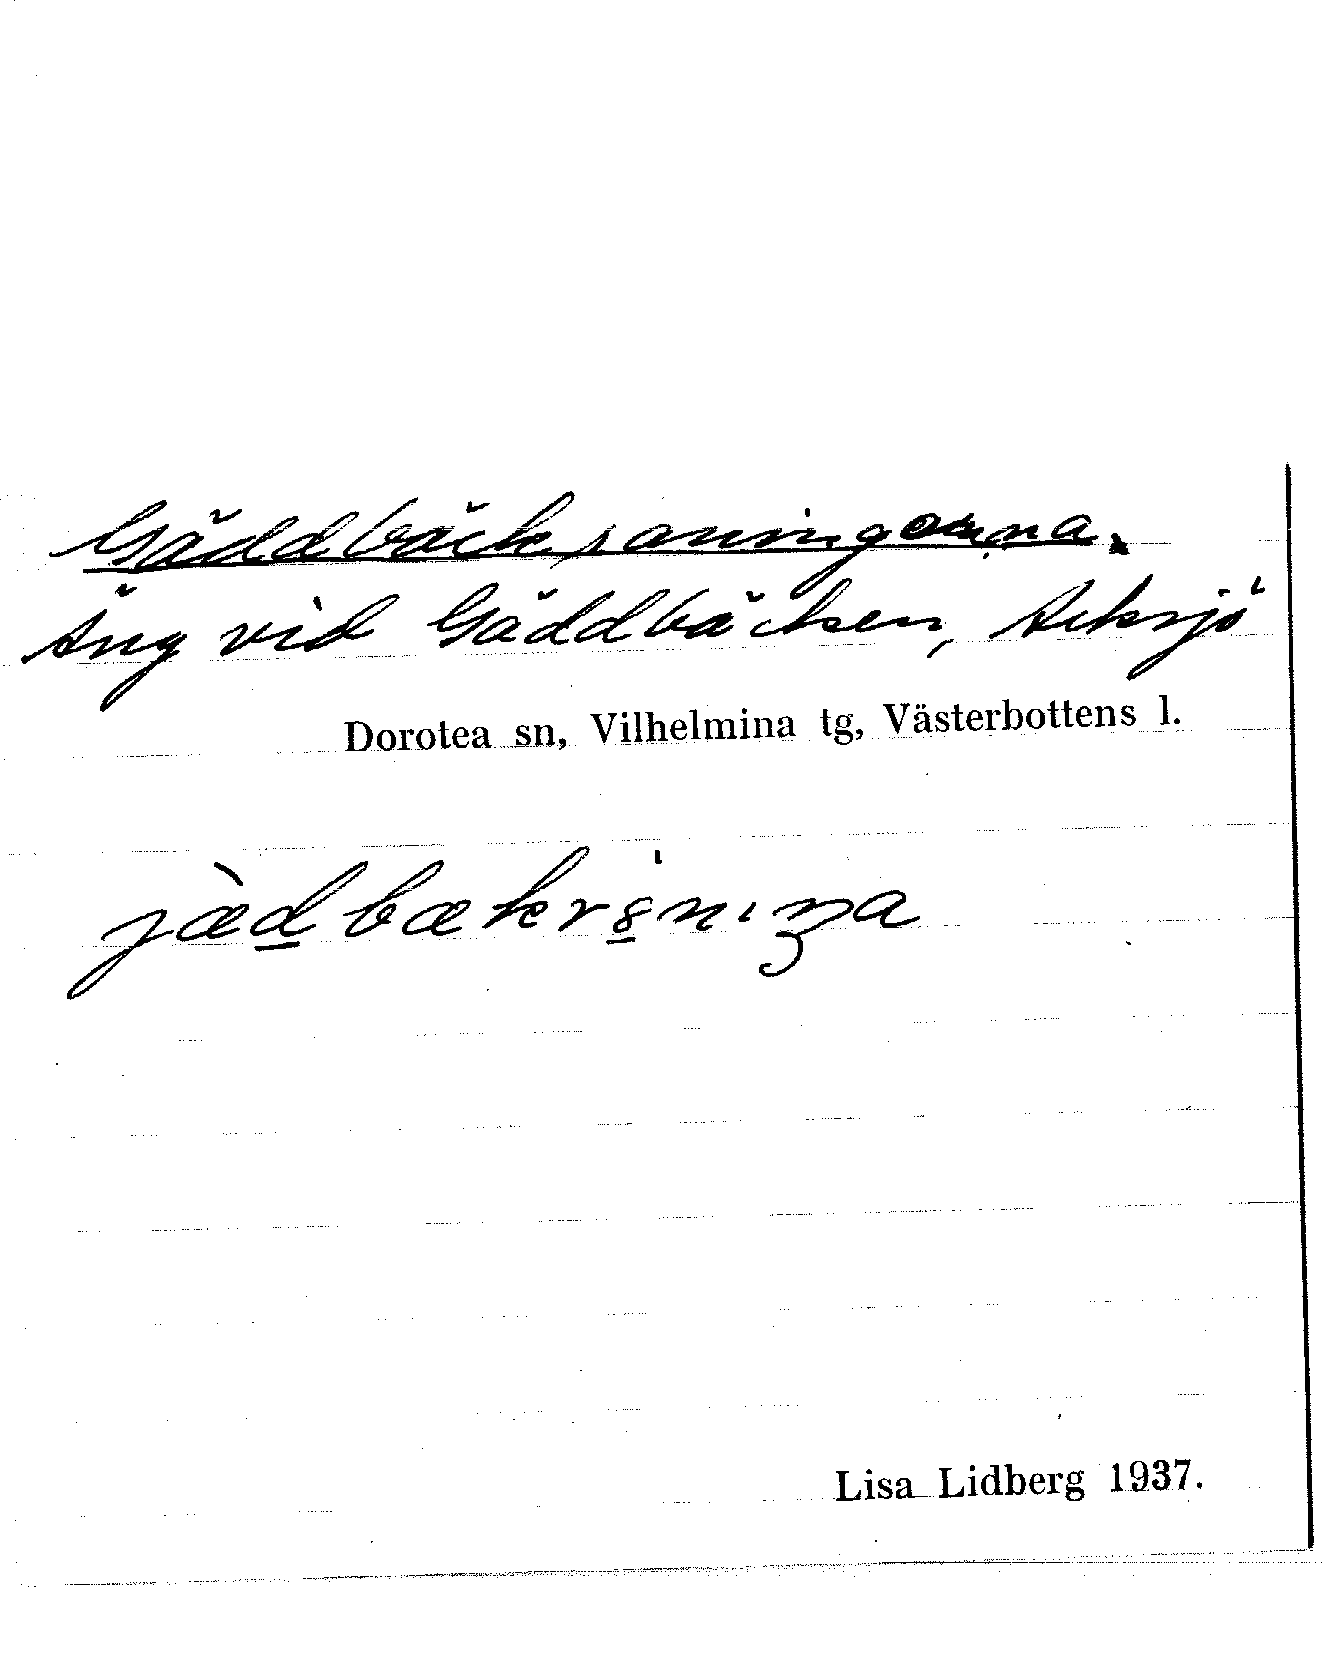 Gäddbäcksraningarna.
Äng vid Gäddbäcken, Avksjö
Dorotea sn, Vilhelmina tg, Västerbottens l.
Lisa Lidberg 1937.